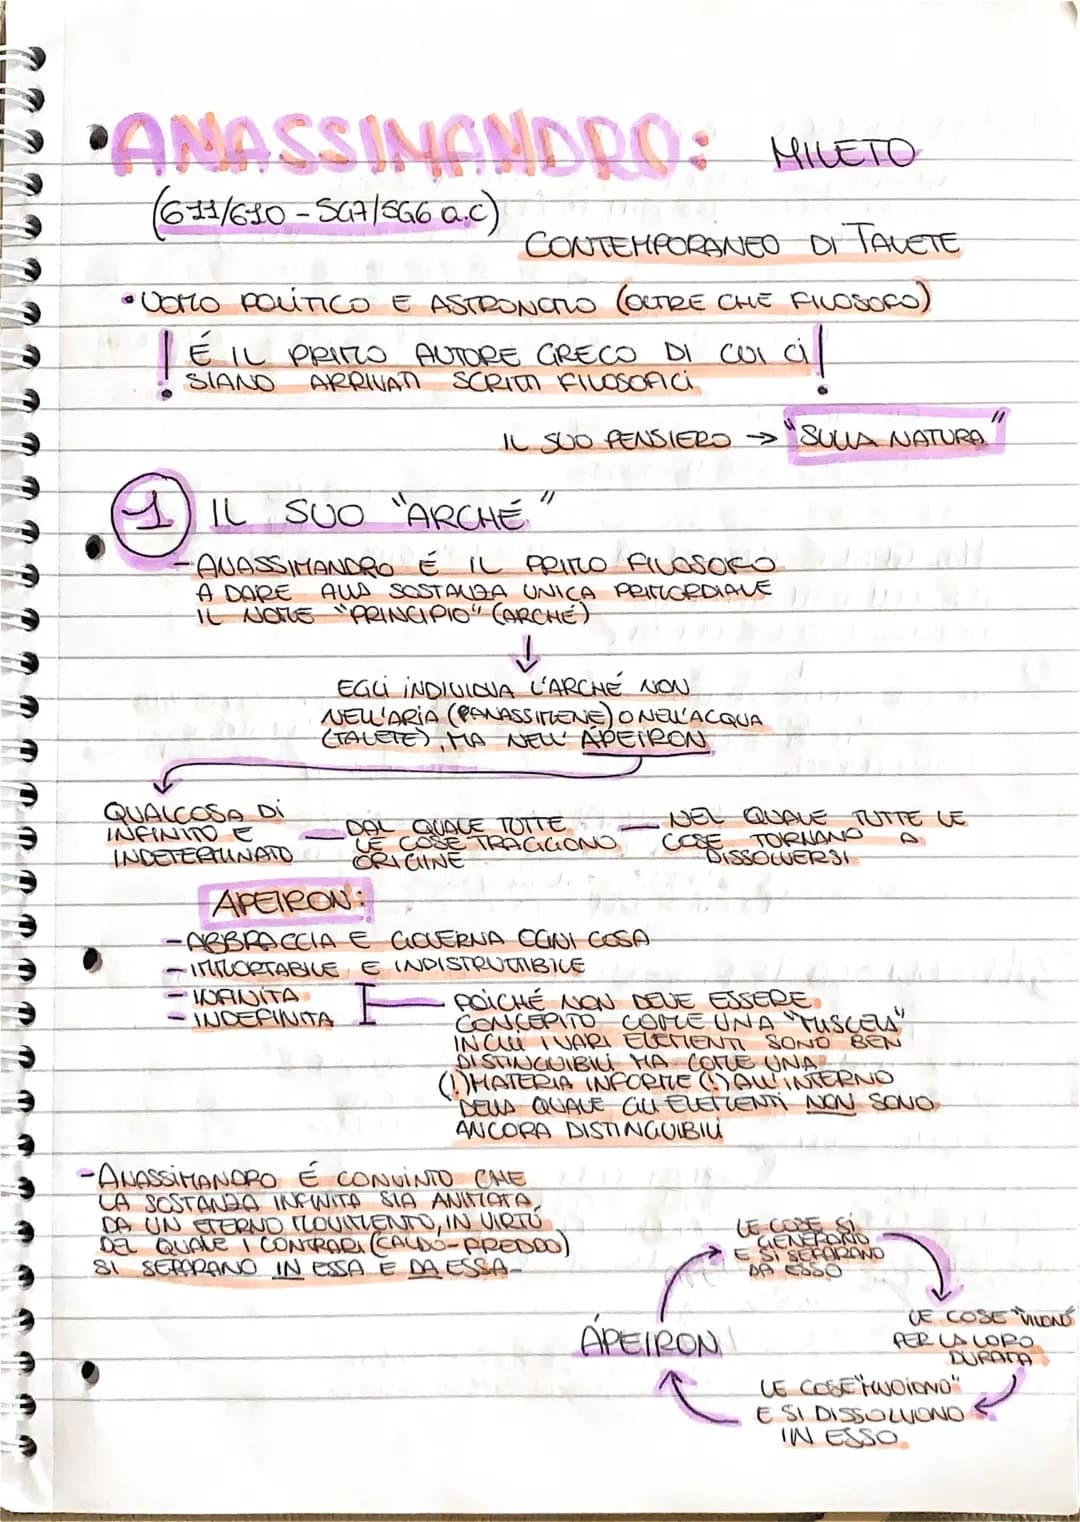 •ANASSIMANDRO: MILETO
(611/610 - 547/546 a.C)
CONTEMPORANEO DI TALETE
•UOMO POLITICO E ASTRONOMO (OLTRE CHE FILOSOFO)
! É IL PRIMO AUTORE GRECO DI CUI CI !
SIANO ARRIVATI SCRITTI FILOSOFICI
IL SUO PENSIERO → "SULLA NATURA"
1 IL SUO "ARCHÉ"
-ANASSIMANDRO É IL PRIMO FILOSOFO
A DARE ALLA SOSTANZA UNICA PRIMORDIALE
IL NOME "PRINCIPIO" (ARCHÉ)
↓
EGLI INDIVIDUA L'ARCHÉ NON
NELL'ARIA (ANASSIMENE) O NELL'ACQUA
(TALETE), MA NELL' ÁPEIRON
QUALCOSA DI
INFINITO E
INDETERMINATO
— DAL QUALE TUTTE
LE COSE TRAGGONO
ORIGINE
— NEL QUALE TUTTE LE
COSE TORNANO A
DISSOLVERSI
APEIRON:
-ABBRACCIA E GOVERNA OGNI COSA
-IMMORTABILE E INDISTRUTTIBILE
-INFINITA
-INDEFINITA
POICHÉ NON DEVE ESSERE
CONCEPITO COME UNA "MISCELA"
IN CUI I VARI ELEMENTI SONO BEN
DISTINGUIBILI MA COME UNA
(!)MATERIA INFORME(!) ALL'INTERNO
DELLA QUALE GLI ELEMENTI NON SONO
ANCORA DISTINGUIBILI
-ANASSIMANDRO É CONVINTO CHE
LA SOSTANZA INFINITA SIA ANIMATA
DA UN ETERNO MOVIMENTO, IN VIRTÚ
DEL QUALE I CONTRARI (CALDO-FREDDO)
SI SEPARANO IN ESSA E DA ESSA-
LE COSE SI
GENERANO
E SI SEPARANO
DA ESSO
ÁPEIRON
LE COSE "VIVONO"
PER LA LORO
DURATA
LE COSE "MUOIONO"
E SI DISSOLVONO
IN ESSO